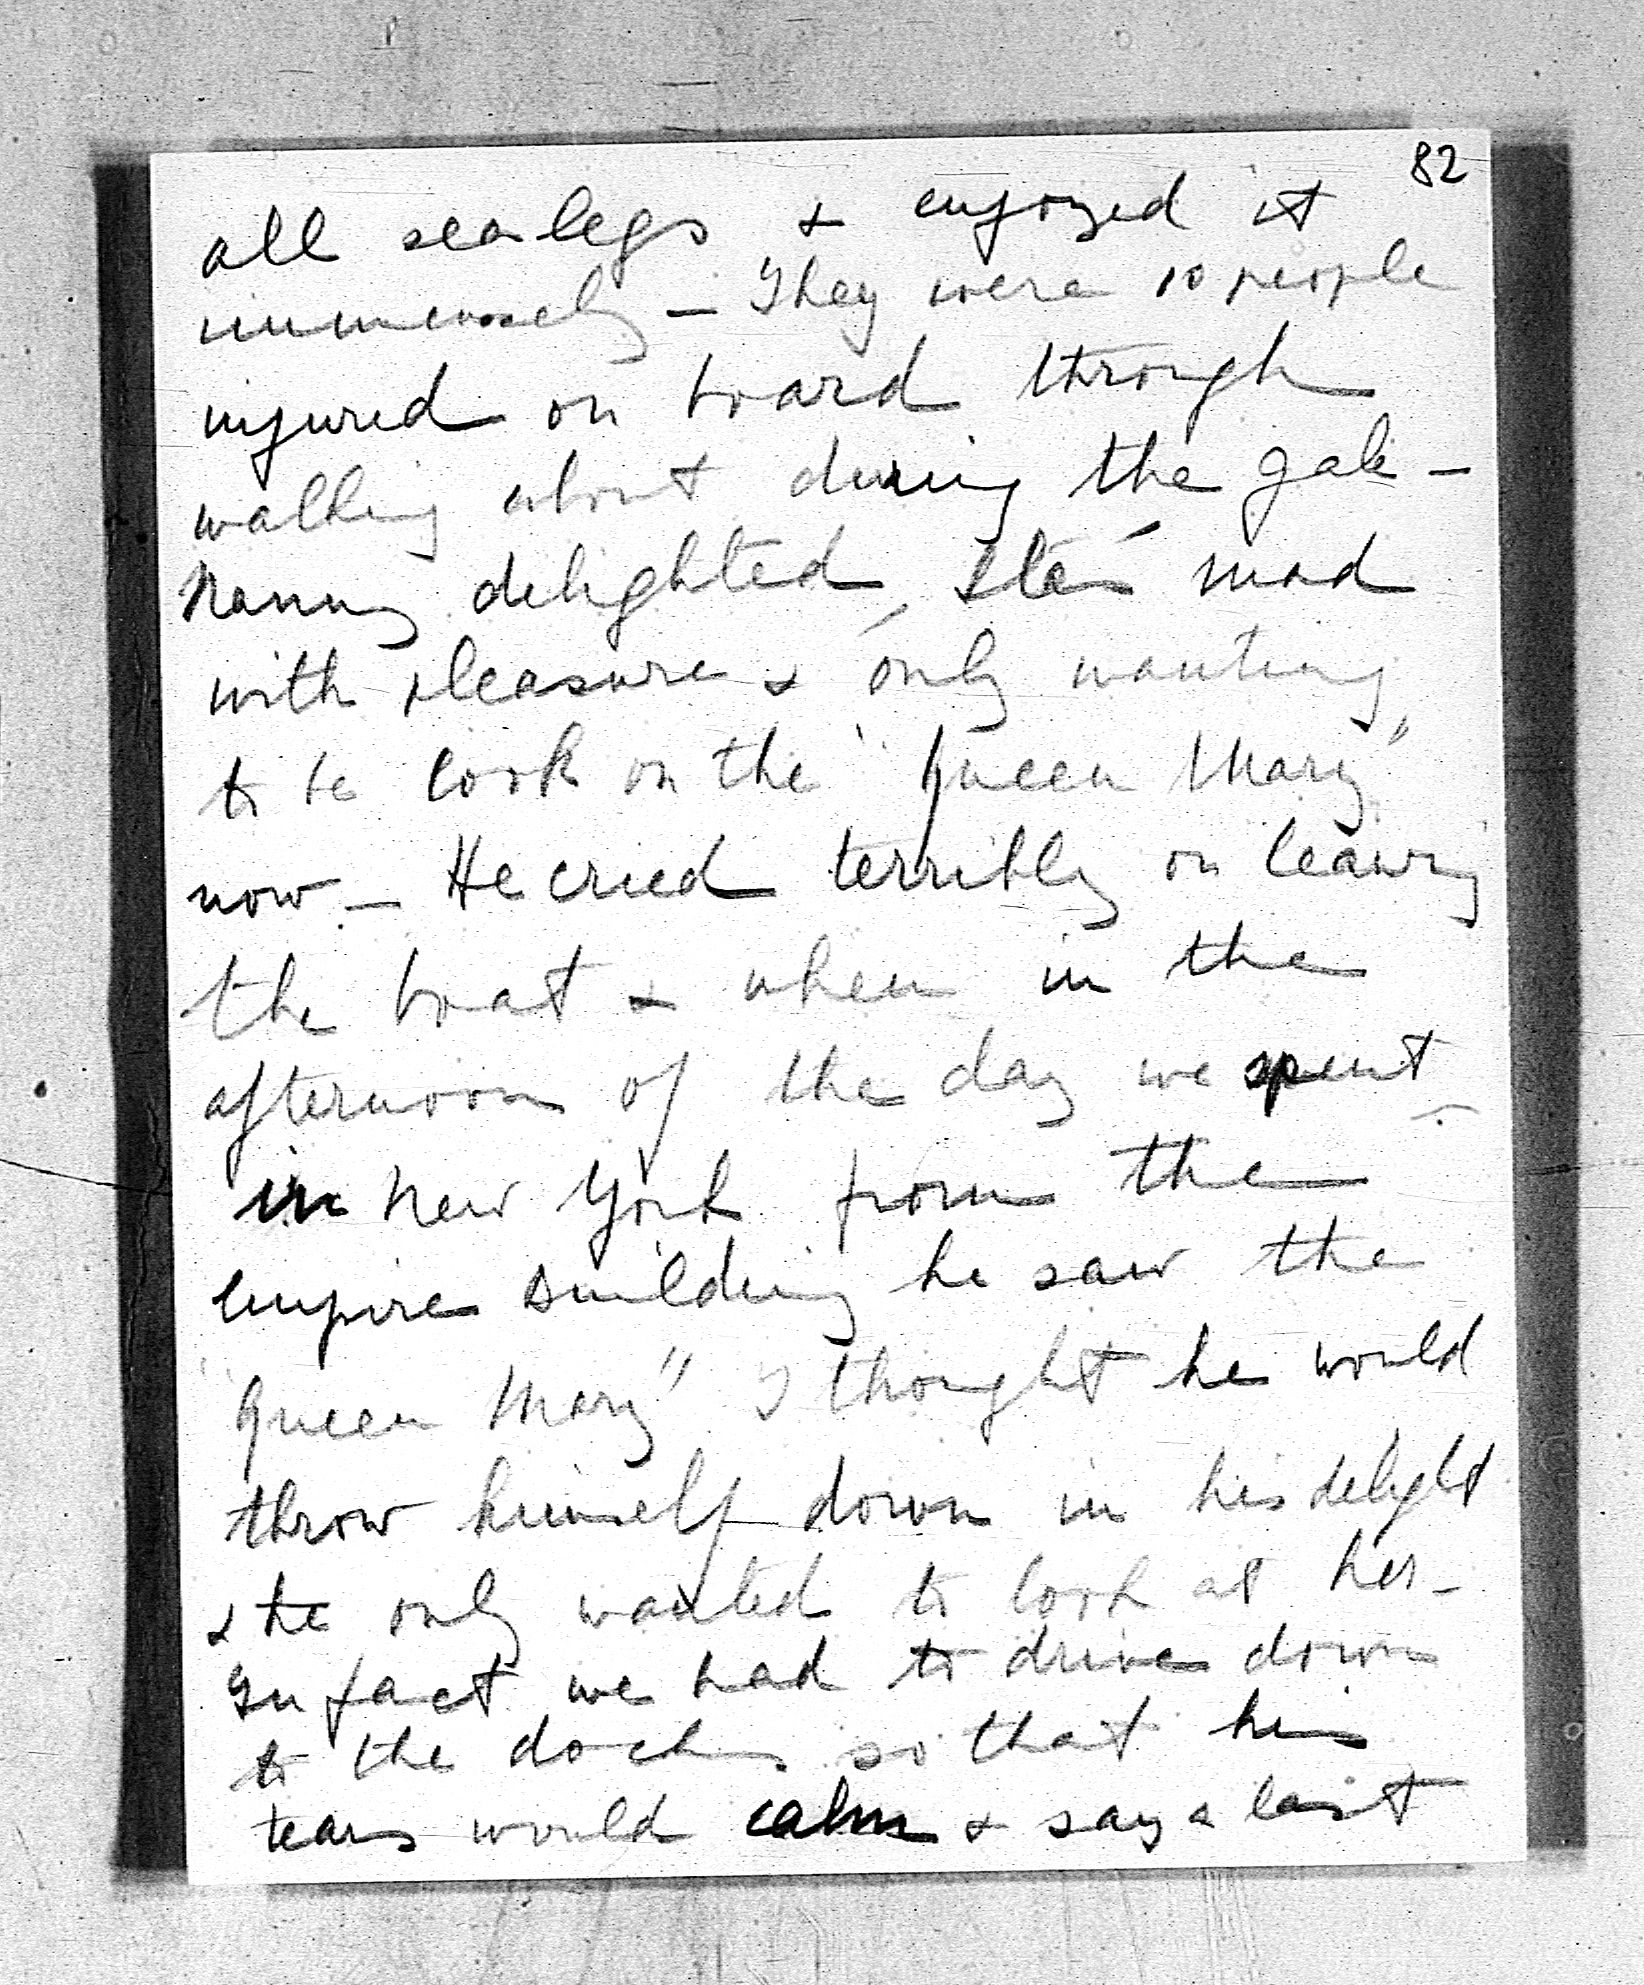 82
all sea legs & enjoyed it
immensely – They were 10 people
injured on board through
walking about during the gale –
Nanny delighted, mad
with pleasure & only wanting
to be back on the "Queen Mary"
now – He cried terribly on leaving
the boat & when in the
afternoon of the day we spent
in New York from the
Empire Building he saw the
"Queen Mary" I thought he would
throw himself down in his delight
& he only wanted to look at her –
In fact we had to drive down
to the docks so that his
tears would calm & say a last